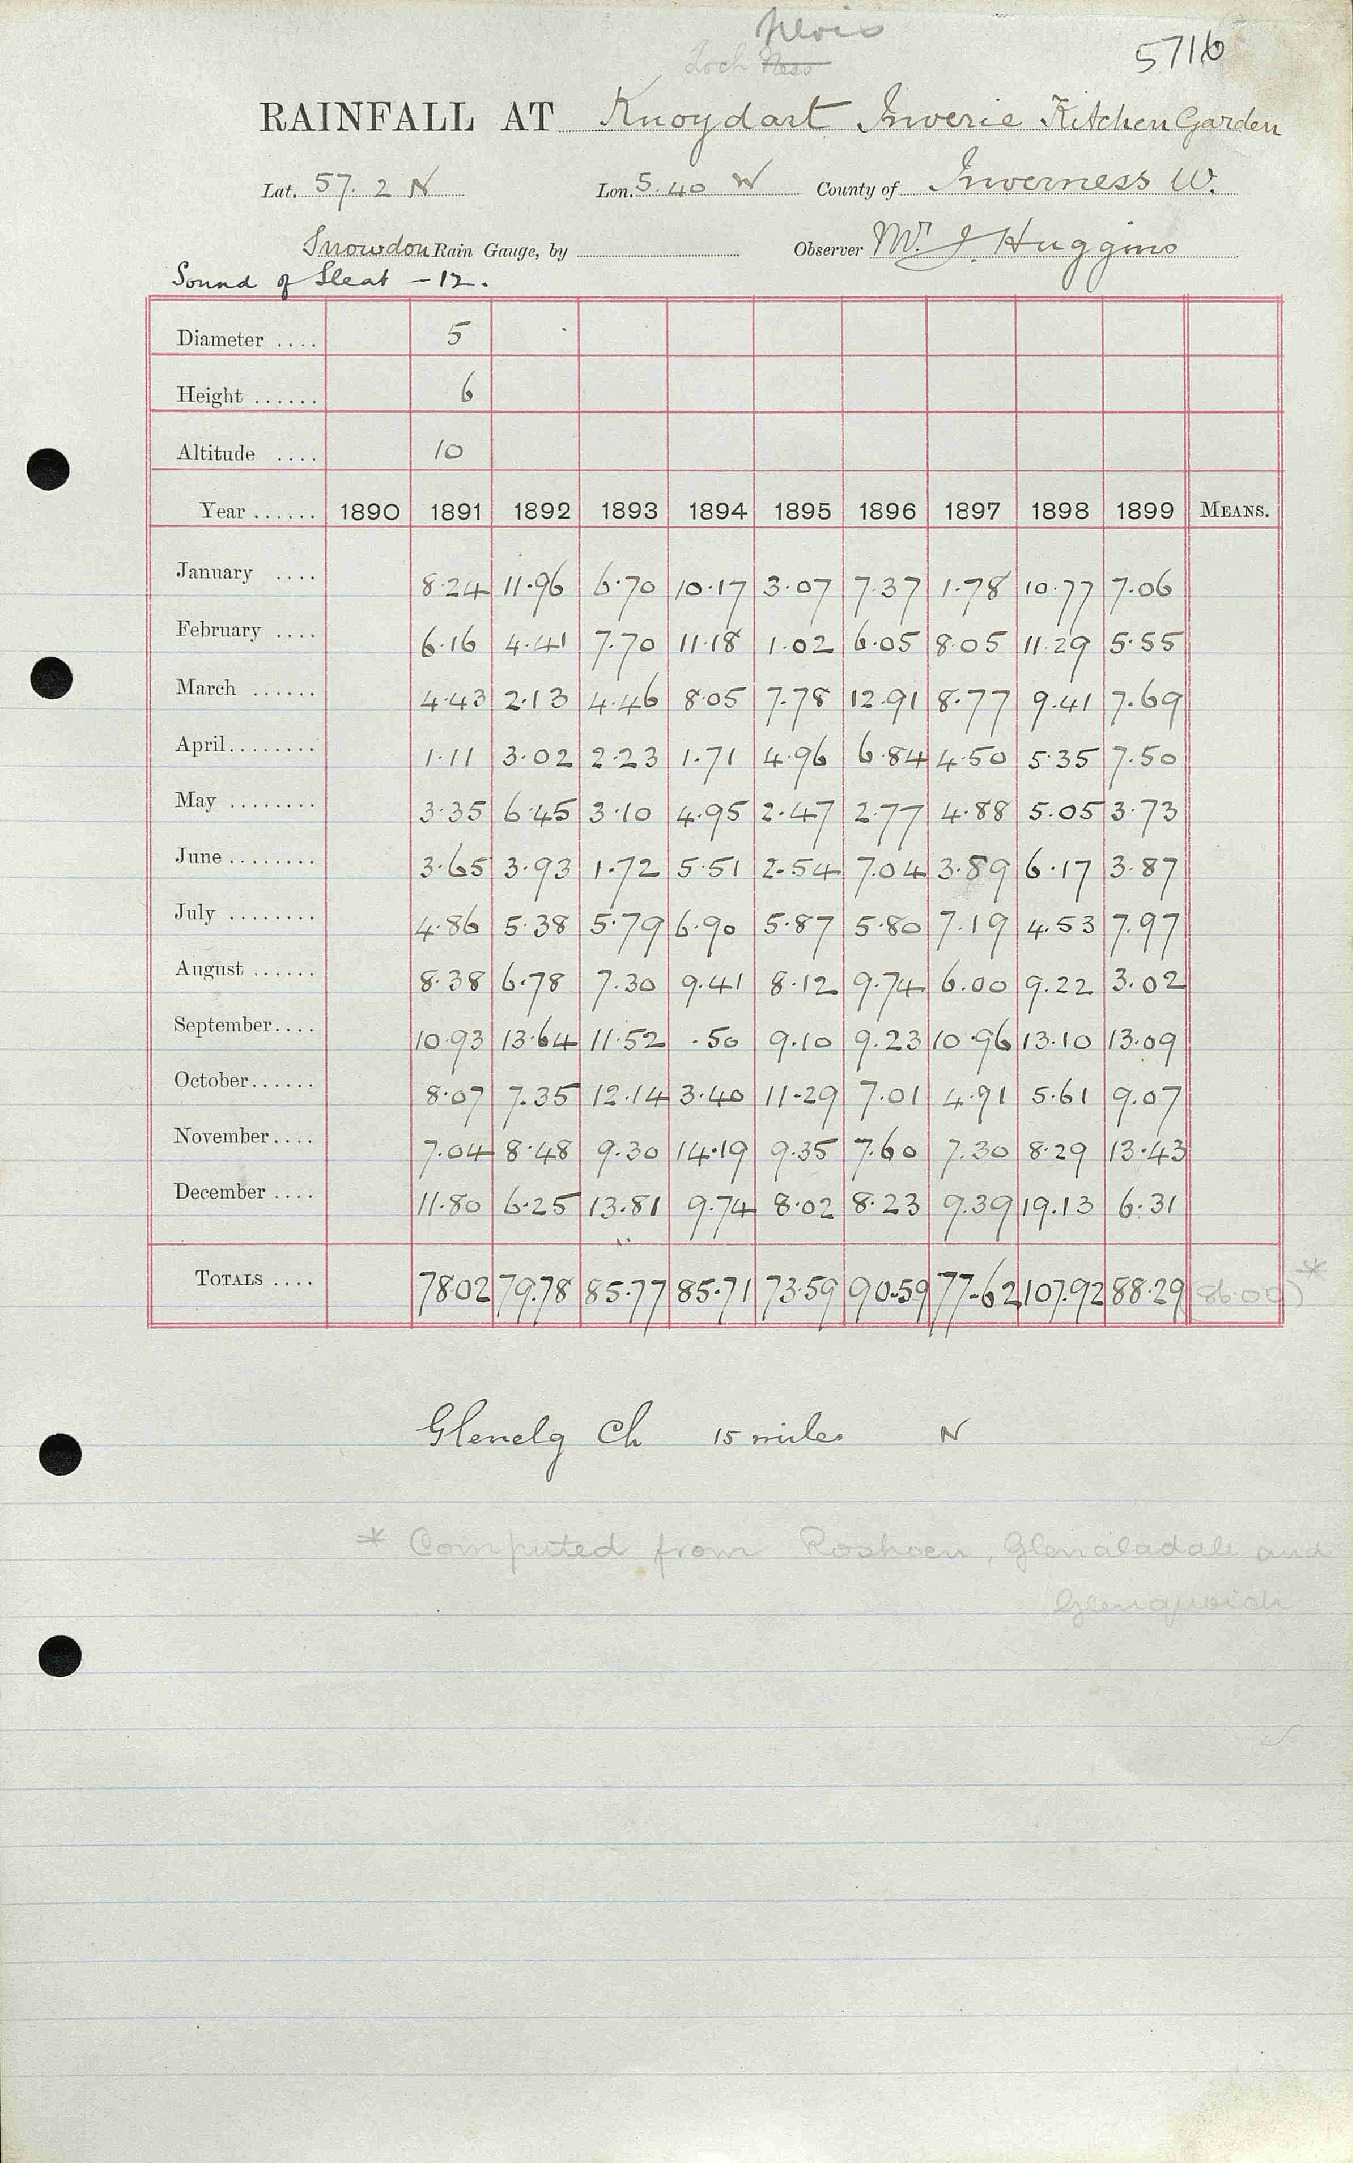 Nevis
Loch Ness
5716
RAINFALL AT Knoydart Inverie Kitchen Garden
Lat. 57. 2 N Lon. 5. 40 W County of Inverness W.
Snowdon Rain Gauge, by Observer Mr. J. Huggins
Sound of Sleat - 12.
Diameter .... 5
Height ...... 6
Altitude .... 10
Year ...... 1890 1891 1892 1893 1894 1895 1896 1897 1898 1899 MEANS.
January .... 8.24 11.96 6.70 10.17 3.07 7.37 1.78 10.77 7.06
February .... 6.16 4.41 7.70 11.18 1.02 6.05 8.05 11.29 5.55
March ...... 4.43 2.13 4.46 8.05 7.78 12.91 8.77 9.41 7.69
April........ 1.11 3.02 2.23 1.71 4.96 6.84 4.50 5.35 7.50
May ........ 3.35 6.45 3.10 4.95 2.47 2.77 4.88 5.05 3.73
June ........ 3.65 3.93 1.72 5.51 2.54 7.04 3.89 6.17 3.87
July ........ 4.86 5.38 5.79 6.90 5.87 5.80 7.19 4.53 7.97
August ...... 8.38 6.78 7.30 9.41 8.12 9.74 6.00 9.22 3.02
September.... 10.93 13.64 11.52 .50 9.10 9.23 10.96 13.10 13.09
October...... 8.07 7.35 12.14 3.40 11.29 7.01 4.91 5.61 9.07
November.... 7.04 8.48 9.30 14.19 9.35 7.60 7.30 8.29 13.43
December .... 11.80 6.25 13.81 9.74 8.02 8.23 9.39 19.13 6.31
TOTALS .... 78.02 79.78 85.77 85.71 73.59 90.59 77.62 107.92 88.29 (86.00) *
Glenelg Ch 15 miles N
* Computed from Roshven, Glenaladale and
Glenquoich